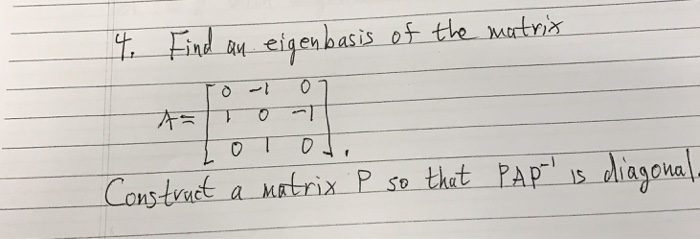 4. Find an eigenbasis of the matrix
A = [ 0 -1 0
1 0 -1
0 1 0 ].
Construct a matrix P so that PAP⁻¹ is diagonal.